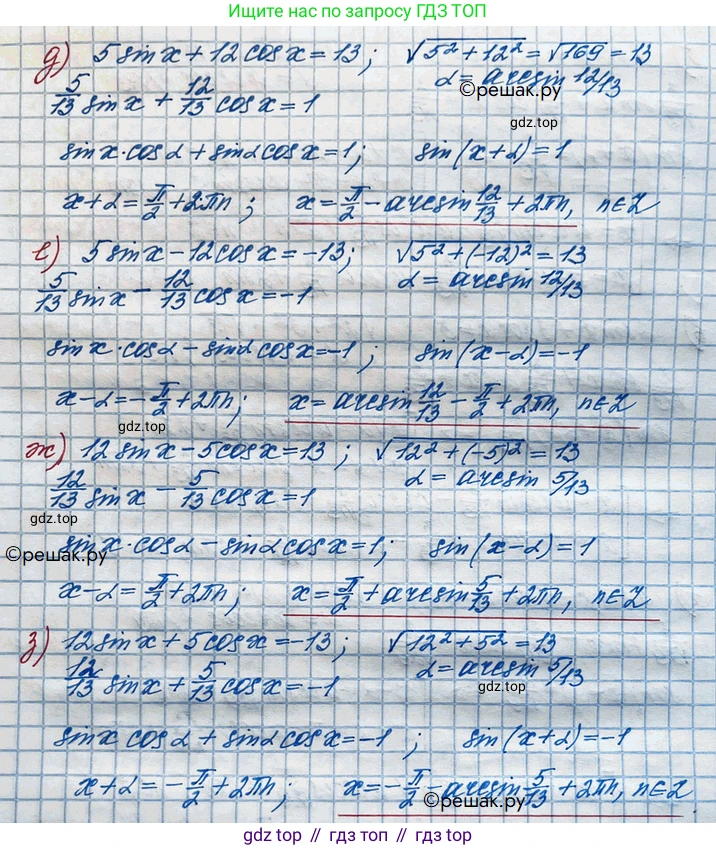 Ищите нас по запросу ГДЗ ТОП
д) 5 sin x + 12 cos x = 13; √5² + 12² = √169 = 13
5/13 sin x + 12/13 cos x = 1 α = arcsin 12/13
©решак.ру
gdz.top
sin x · cos α + sin α cos x = 1; sin (x + α) = 1
x + α = π/2 + 2πn; x = π/2 - arcsin 12/13 + 2πn, n ∈ Z
е) 5 sin x - 12 cos x = -13; √5² + (-12)² = 13
5/13 sin x - 12/13 cos x = -1 α = arcsin 12/13
sin x · cos α - sin α cos x = -1; sin (x - α) = -1
x - α = -π/2 + 2πn; x = arcsin 12/13 - π/2 + 2πn, n ∈ Z
ж) 12 sin x - 5 cos x = 13; √12² + (-5)² = 13
12/13 sin x - 5/13 cos x = 1 α = arcsin 5/13
gdz.top
sin x · cos α - sin α cos x = 1; sin (x - α) = 1
©решак.ру
x - α = π/2 + 2πn; x = π/2 + arcsin 5/13 + 2πn, n ∈ Z
з) 12 sin x + 5 cos x = -13; √12² + 5² = 13
12/13 sin x + 5/13 cos x = -1 α = arcsin 5/13
gdz.top
sin x cos α + sin α cos x = -1; sin (x + α) = -1
x + α = -π/2 + 2πn; x = -π/2 - arcsin 5/13 + 2πn, n ∈ Z
©решак.ру
gdz top // гдз топ // гдз.top